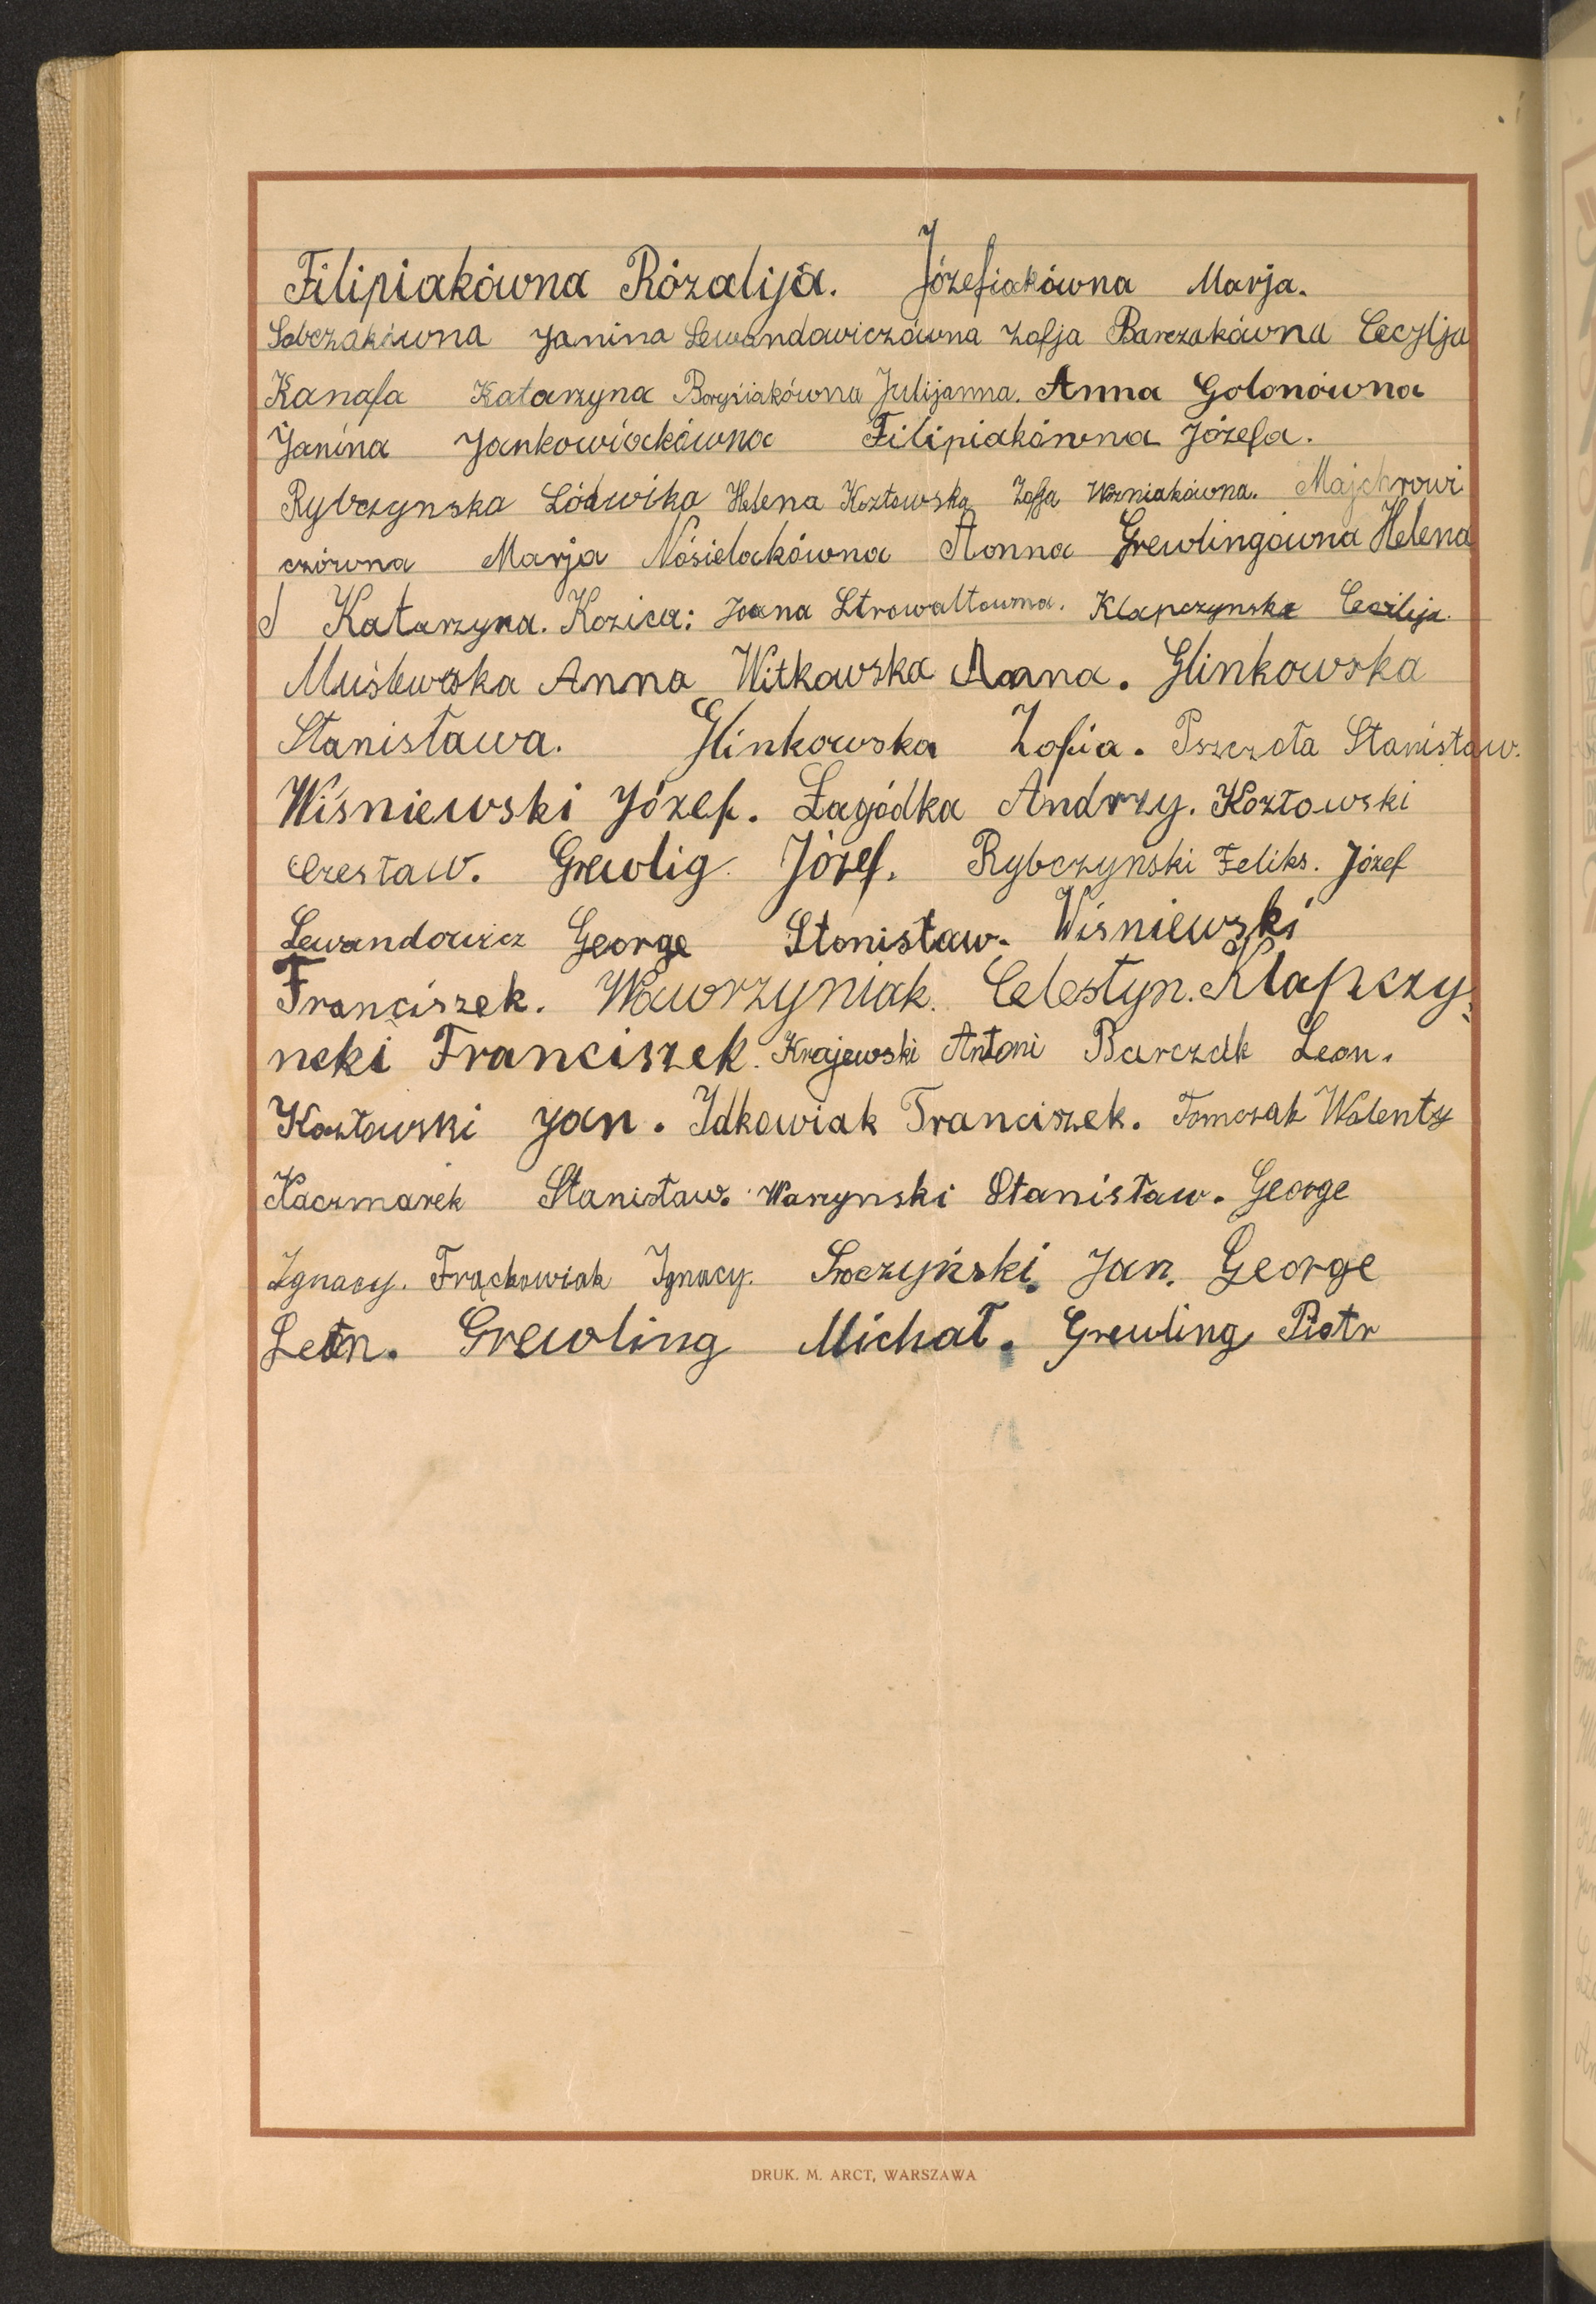 Filipiakówna Rózalija. Józefiakówna Marja.
Sobczakówna Janina Lewandowiczówna Zofja Barczakówna Cecylja
Kanafa Katarzyna Boryśiakówna Julijanna. Anna Golonówna
Janina Jankowiackówna Filipiakówna Józefa.
Rybczynska Lódwika Helena Kozłowska Zofja Woźniakówna. Majchrowi
czówna Marja Nósielackówna Anna Grewlingówna Helena
Katarzyna. Kozica: Joana Strowałtowna. Klapczynska Cecilija.
Muślewska Anna Witkowska Anna. Glinkowska
Stanisława. Glinkowska Zofia. Pszczoła Stanisław.
Wiśniewski Józef. Łagódka Andrzy. Kozłowski
Czesław. Grewlig Józef. Rybczynski Feliks. Józef
Lewandowicz George Stanisław. Wiśniewski
Franciszek. Wawrzyniak. Celestyn. Klapczy-
ncki Franciszek. Krajewski Antoni Barczak Leon.
Kozłowski Jan. Idkowiak Franciszek. Tomczak Walenty
Kaczmarek Stanisław. Warzynski Stanisław. George
Ignacy. Frąckowiak Ignacy. Sroczyński Jan. George
Leon. Grewling Michał. Grewling Piotr
DRUK. M. ARCT, WARSZAWA